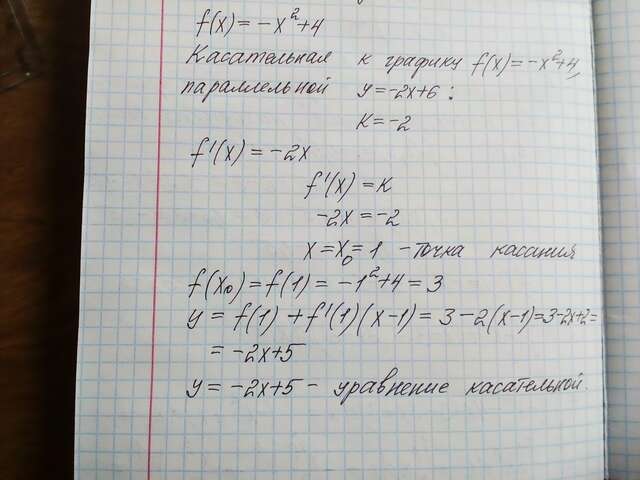 f(x) = -x²+4
Касательная к графику f(x) = -x²+4,
параллельной y=-2x+6:
K=-2
f'(x) = -2x
f'(x) = K
-2x = -2
x = x₀ = 1 - точка касания
f(x₀) = f(1) = -1²+4 = 3
y = f(1) + f'(1)(x-1) = 3-2(x-1)=3-2x+2=
= -2x+5
y = -2x+5 - уравнение касательной.